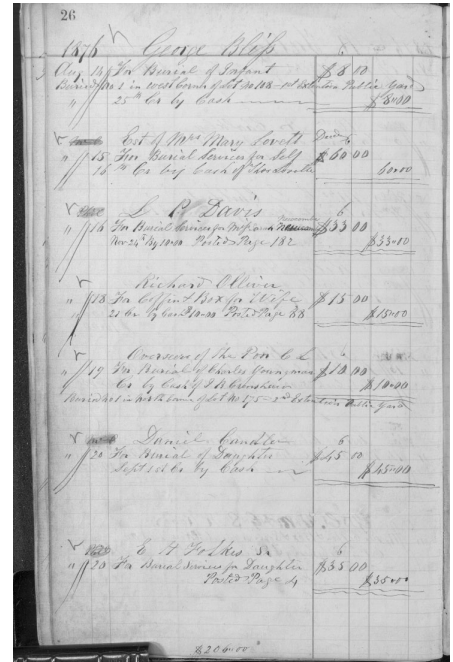 26
1876 George Bliss 6
Aug 14 For Burial of Infant $8 00
Buried No 1 in west Corner of Lot No 108 1st Extention Public Yard
" 25th Cr by Cash $8.00
Est of Mrs Mary Lovett
" 15 For Burial Services for Self $60 00
16th Cr by Cash of 60.00
L. P. Davis 6
" 16 For Burial Services for $33 00
Nov 24th By 10.00 Posted Page 182 $33.00
Richard Olliver
" 18 For Coffin & Box for Wife $15 00
21 Cr by Cash 10.00 Posted Page 88 $15.00
Overseers of the Poor C L
" 19 For Burial of Charles Youngman $10 00
Cr by Cash of $10.00
Buried No 2 in north Corner of Lot No 175 2nd Extention Public Yard
Daniel Candler 6
" 20 For Burial of Daughter $45 00
Sept 1st Cr by Cash $45.00
E H Folkes Sr 6
" 20 For Burial Services for Daughter $35 00
Posted Page 4 $35.00
$206.00